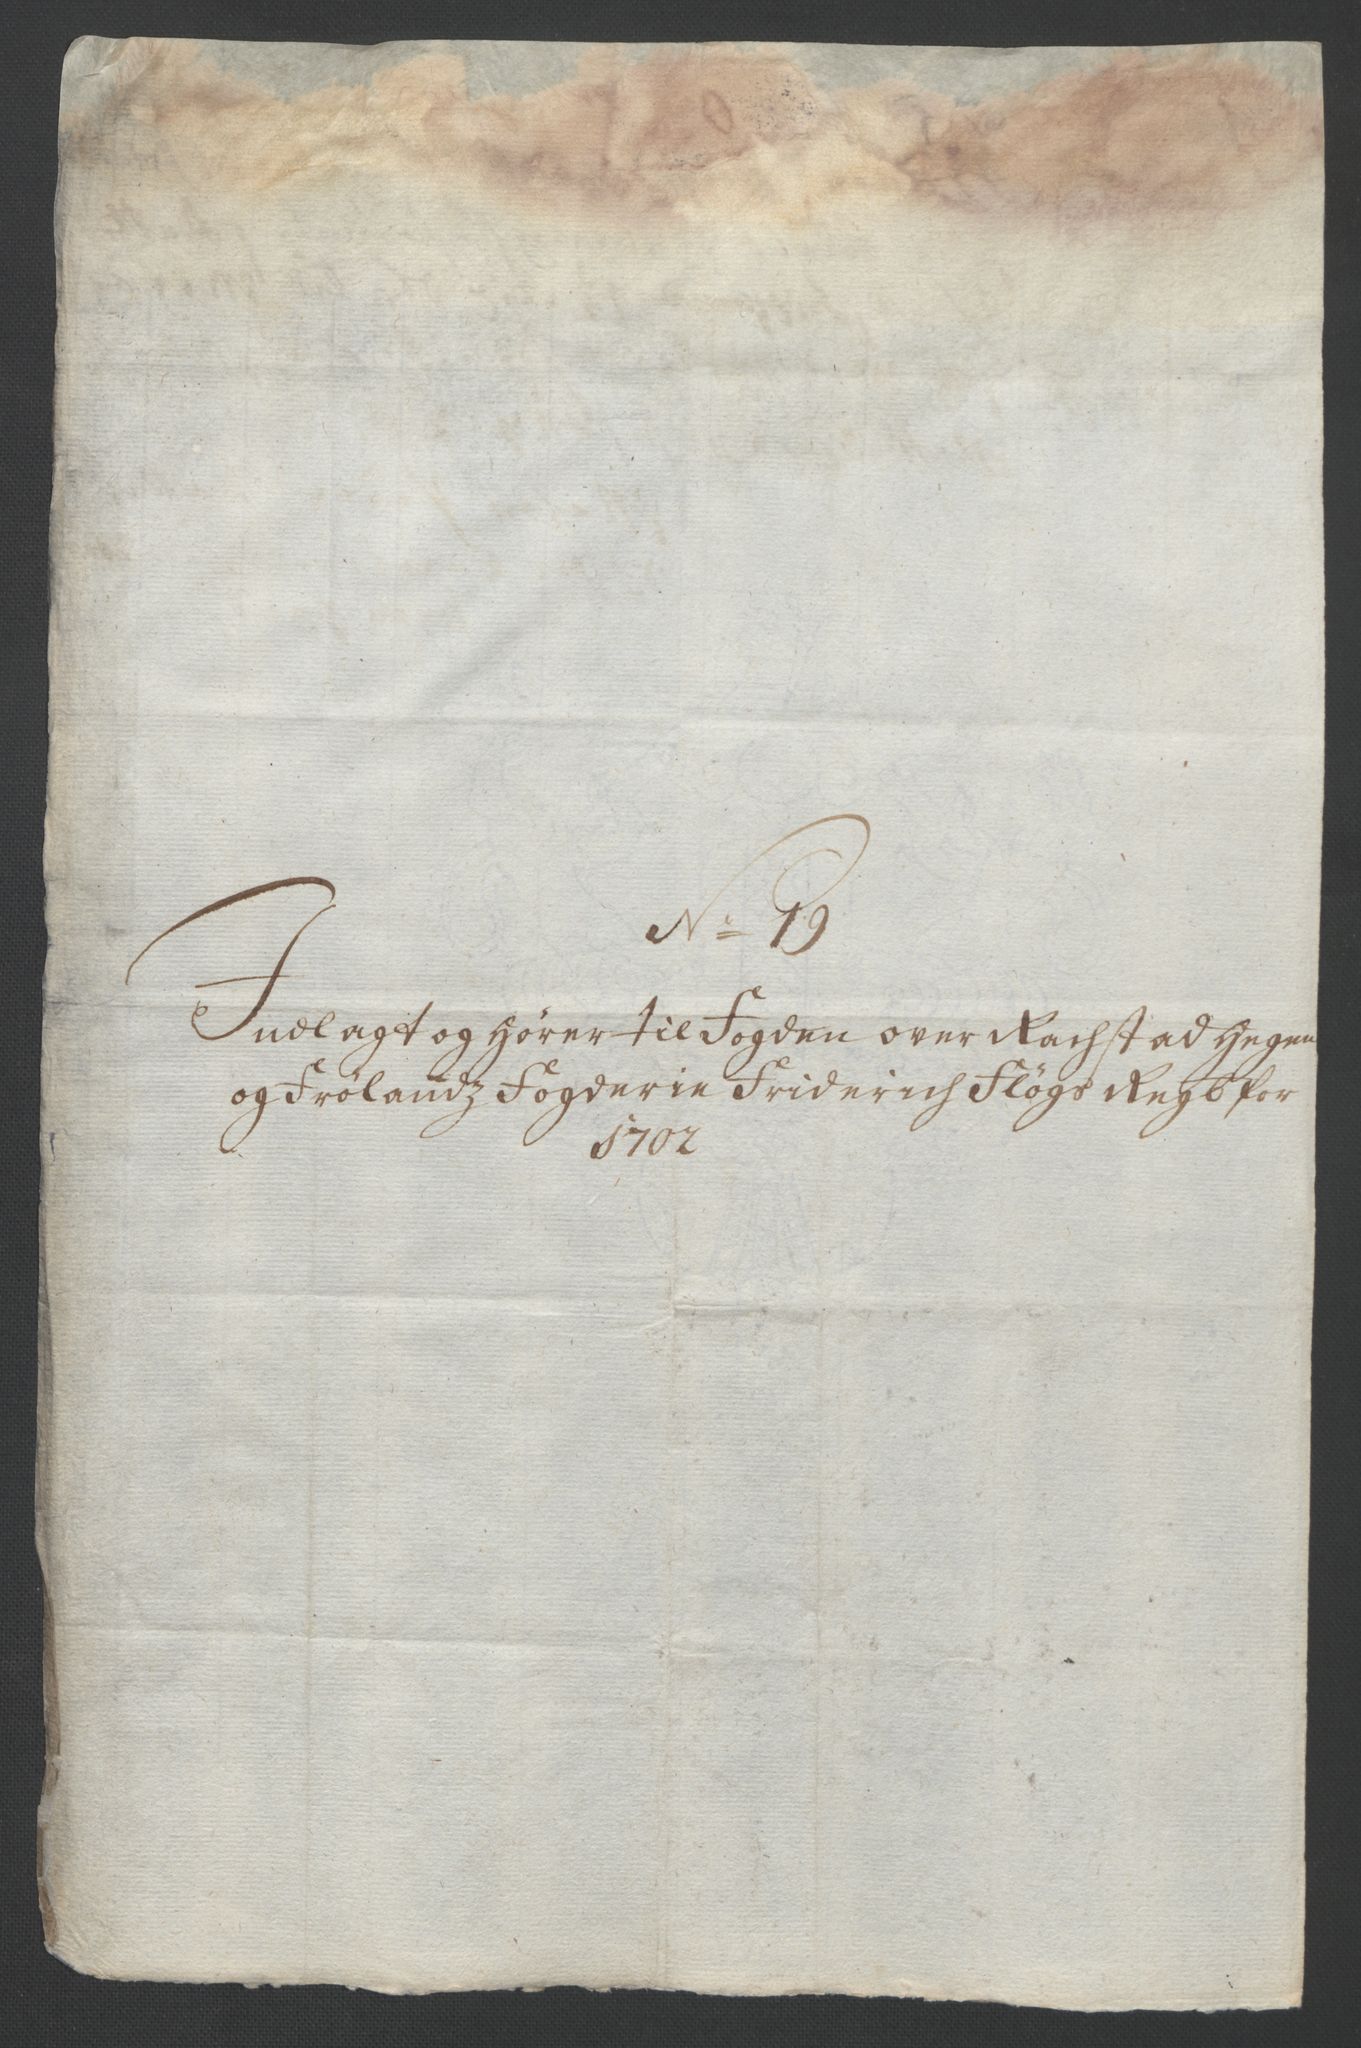 No 19
Indlagt og hører til Fogden over Rachstad Hegen
og Frølandz Fogderie Friderich Fløgs Regb for
1702